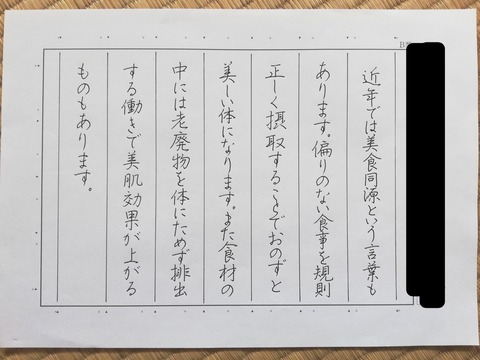 近年では美食同源という言葉も
あります。偏りのない食事を規則
正しく摂取することでおのずと
美しい体になります。また食材の
中には老廃物を体にためず排出
する働きで美肌効果が上がる
ものもあります。